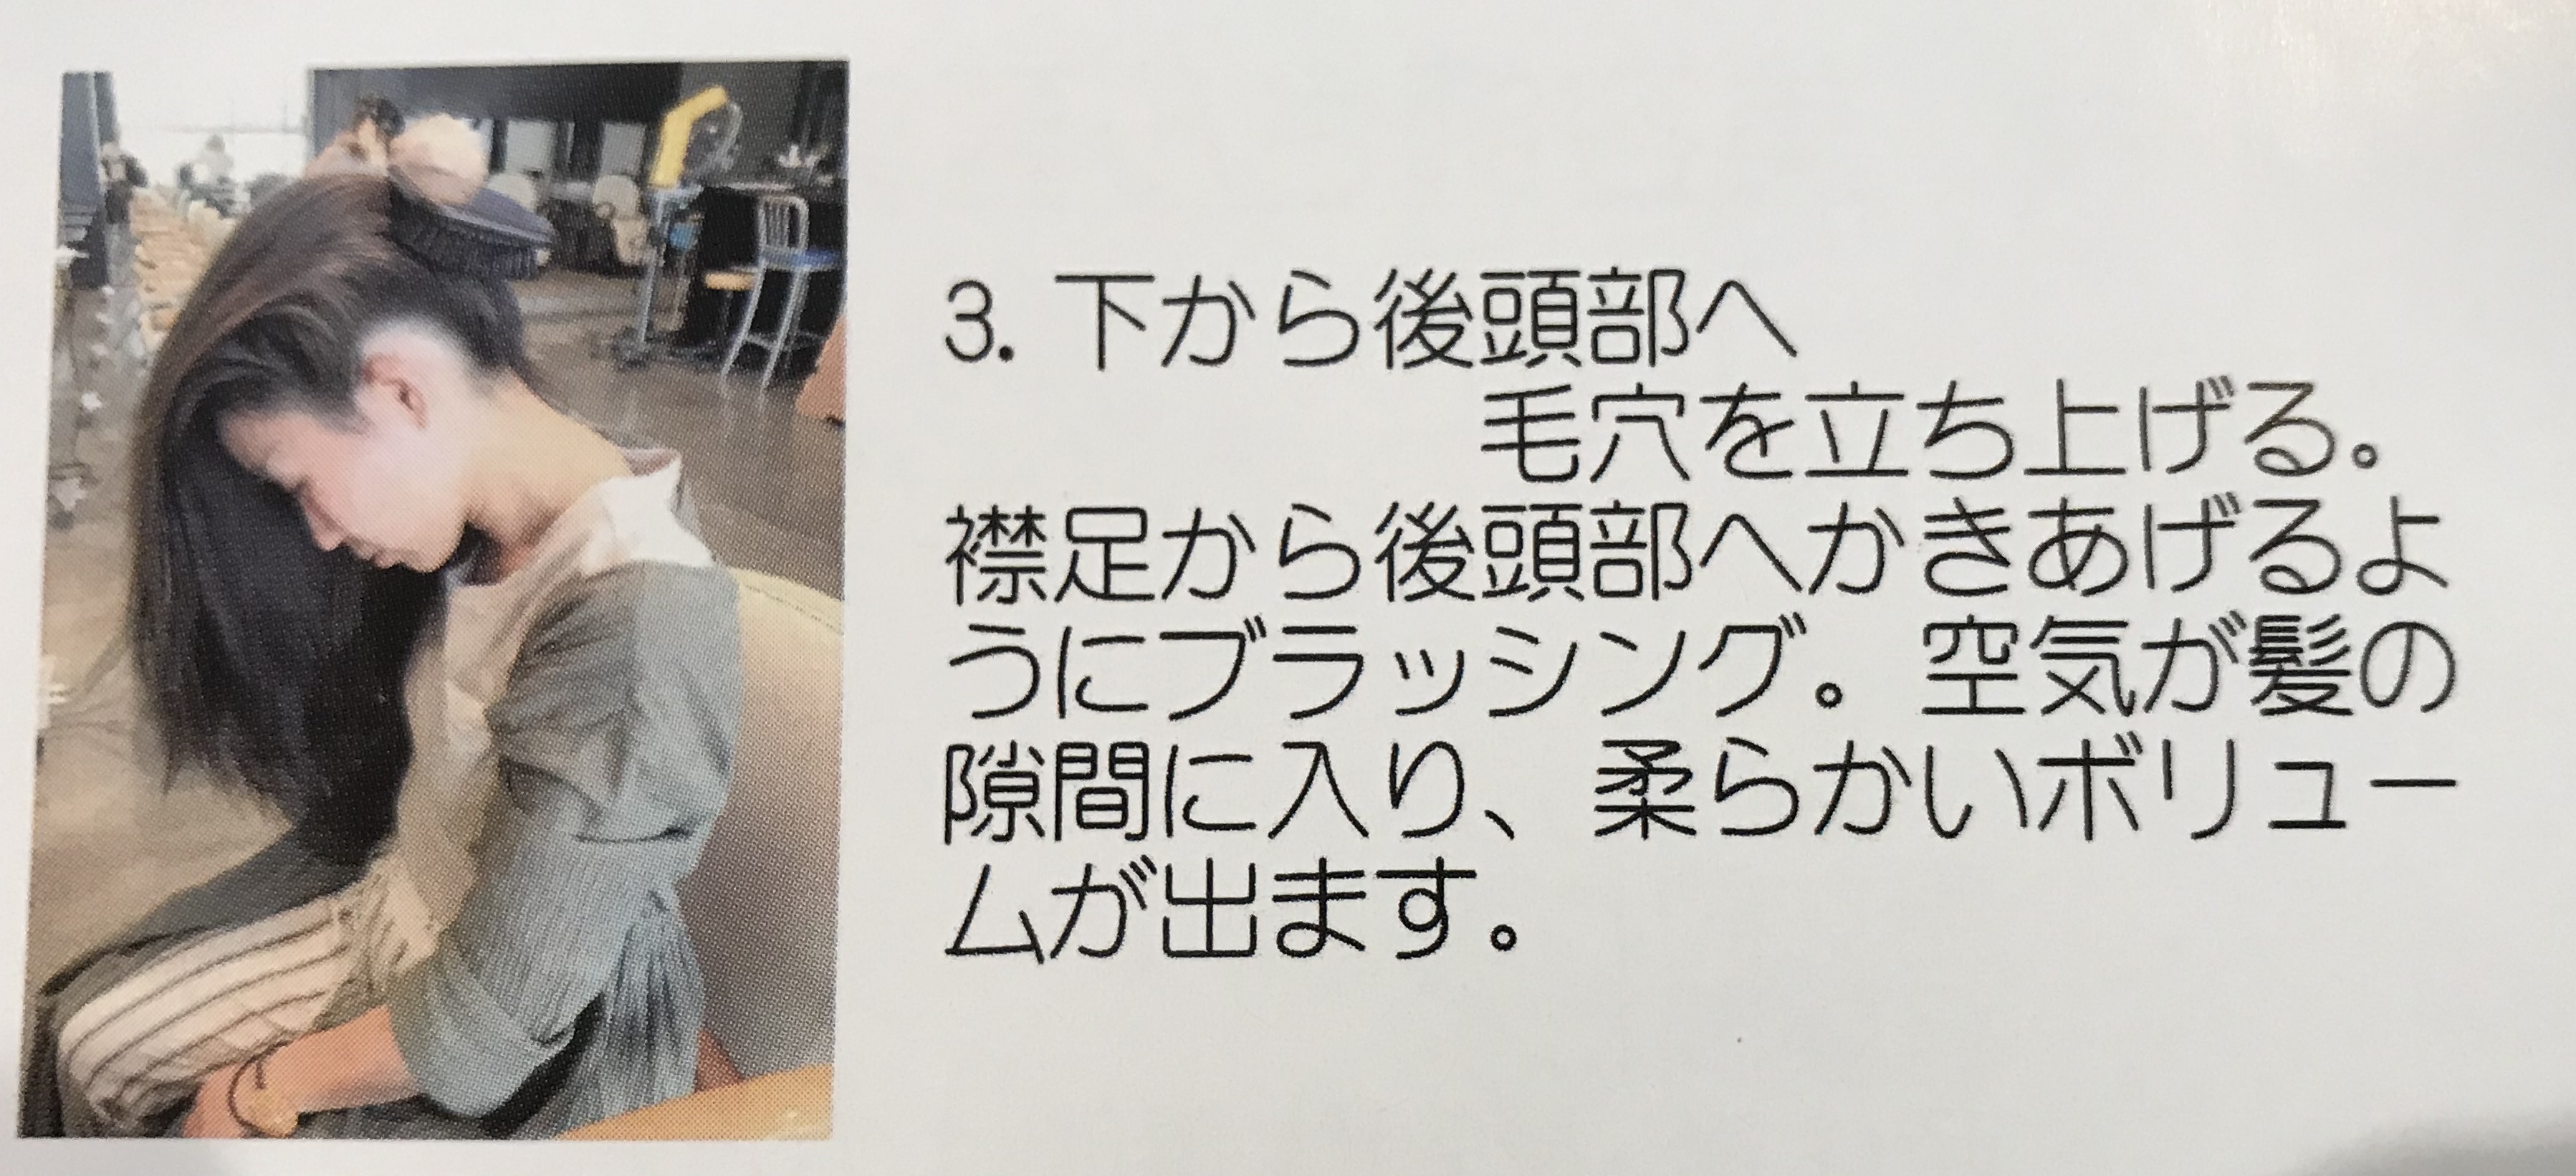 3. 下から後頭部へ
毛穴を立ち上げる。
襟足から後頭部へかきあげるよ
うにブラッシング。空気が髪の
隙間に入り、柔らかいボリュー
ムが出ます。